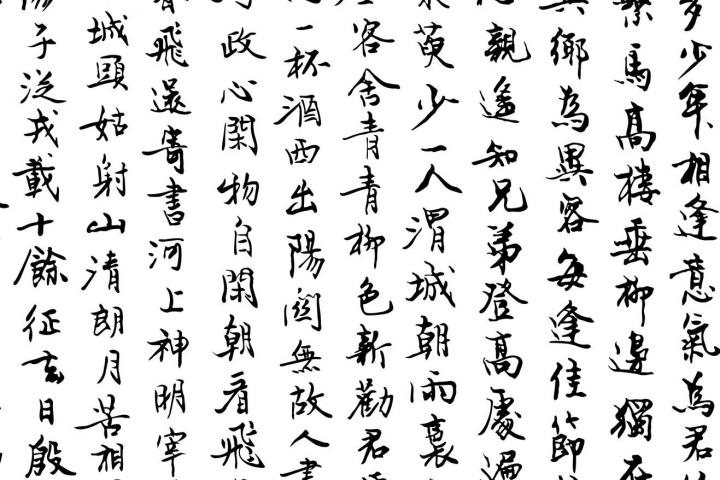 多少年相逢意氣為君
馬高樓垂柳邊獨在
鄉為異客每逢佳節
親遙知兄弟登高處遍
萸少一人渭城朝雨裛
客舍青青柳色新勸君
一杯酒西出陽關無故人書
政心閑物自閑朝看飛
飛還寄書河上神明宰
城頭姑射山清朗月苦相
子泛戎載十餘征玄日殷